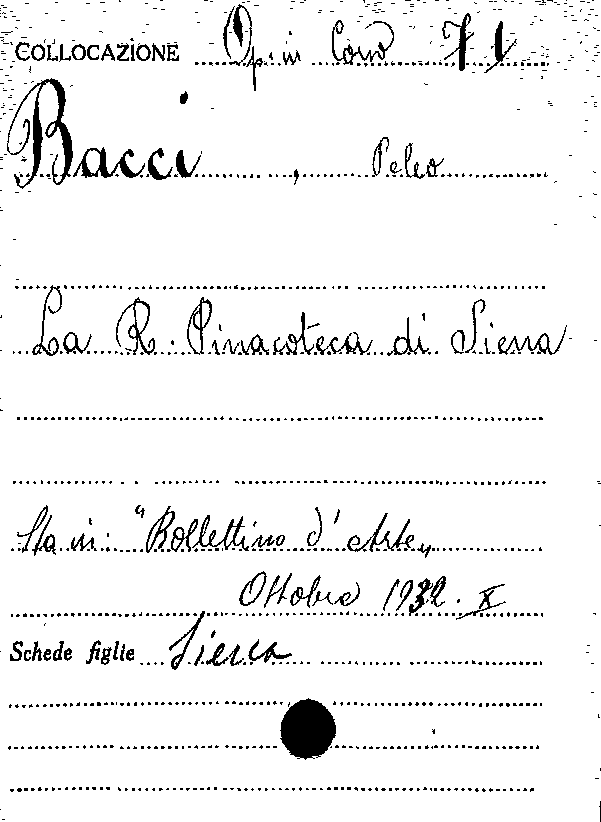 COLLOCAZIONE Op. in Coro 7 1
Bacci, Peleo
La R. Pinacoteca di Siena
Sta in: "Bollettino d'Arte„
Ottobre 1932. X
Schede figlie Siena